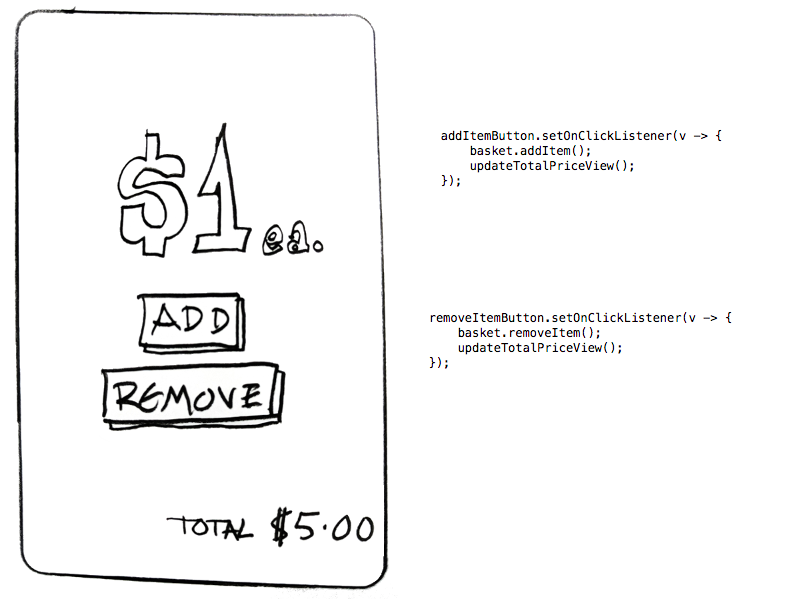 $1 ea.
ADD
REMOVE
TOTAL $5.00
addItemButton.setOnClickListener(v -> {
    basket.addItem();
    updateTotalPriceView();
});
removeItemButton.setOnClickListener(v -> {
    basket.removeItem();
    updateTotalPriceView();
});